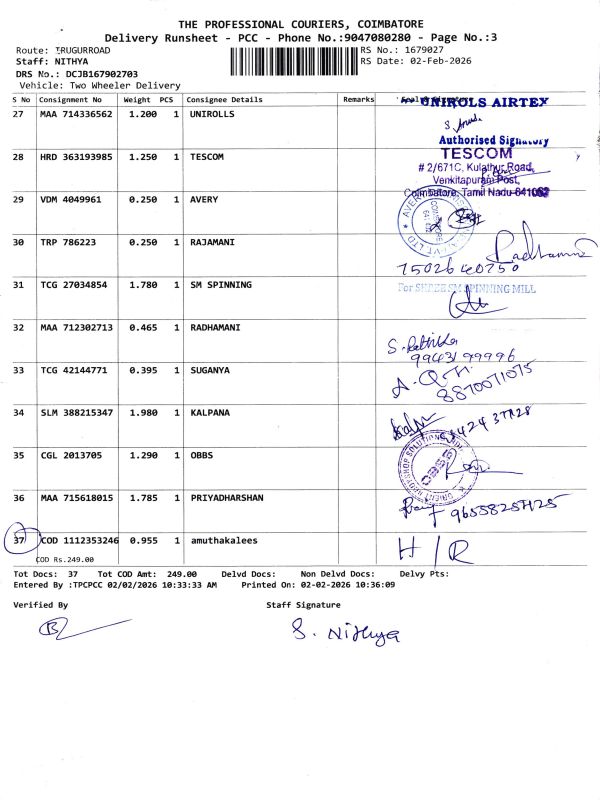 THE PROFESSIONAL COURIERS, COIMBATORE
Delivery Runsheet - PCC - Phone No.:9047080280 - Page No.:3
Route: IRUGURROAD RS No.: 1679027
Staff: NITHYA RS Date: 02-Feb-2026
DRS No.: DCJB167902703
Vehicle: Two Wheeler Delivery
S No Consignment No Weight PCS Consignee Details Remarks
27 MAA 714336562 1.200 1 UNIROLLS UNIROLS AIRTEX
Authorised Signatory
28 HRD 363193985 1.250 1 TESCOM TESCOM
# 2/671C, Kulathur Road,
Venkitapuram Post,
Coimbatore, Tamil Nadu-641062
29 VDM 4049961 0.250 1 AVERY
30 TRP 786223 0.250 1 RAJAMANI
7502640750
31 TCG 27034854 1.780 1 SM SPINNING For SHREE SM SPINNING MILL
32 MAA 712302713 0.465 1 RADHAMANI
9943199996
33 TCG 42144771 0.395 1 SUGANYA
8870071075
34 SLM 388215347 1.980 1 KALPANA
35 CGL 2013705 1.290 1 OBBS
36 MAA 715618015 1.785 1 PRIYADHARSHAN
37 COD 1112353246 0.955 1 amuthakalees H/R
COD Rs.249.00
Tot Docs: 37 Tot COD Amt: 249.00 Delvd Docs: Non Delvd Docs: Delvy Pts:
Entered By :TPCPCC 02/02/2026 10:33:33 AM Printed On: 02-02-2026 10:36:09
Verified By Staff Signature
S. Nithya